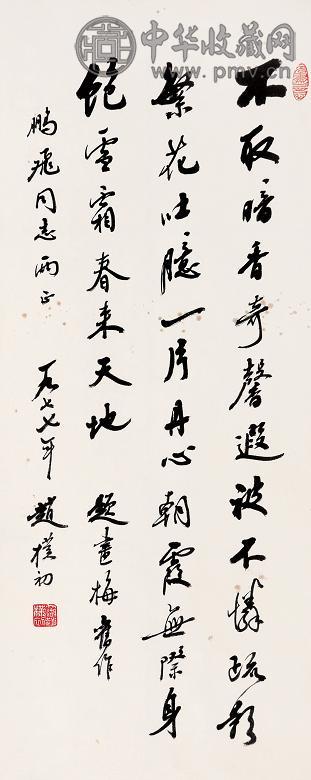 中华收藏网
www.pmv.cn
不取暗香奇馨遐被不怜疏影
繁花吐臆一片丹心朝霞无际身
饱雪霜春来天地 题画梅旧作
鹏飞同志两正 一九七七年 赵朴初